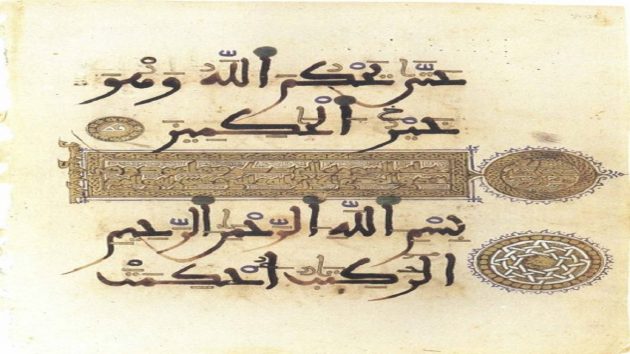 حَتَّىٰ يَحْكُمَ اَ۬للَّهُ وَهْوَ
خَيْرُ اُ۬لْحَٰكِمِينَ
بِسْمِ اِ۬للَّهِ اِ۬لرَّحْمَٰنِ اِ۬لرَّحِيمِ
أَلَٓر كِتَٰبٌ اُحْكِمَتْ